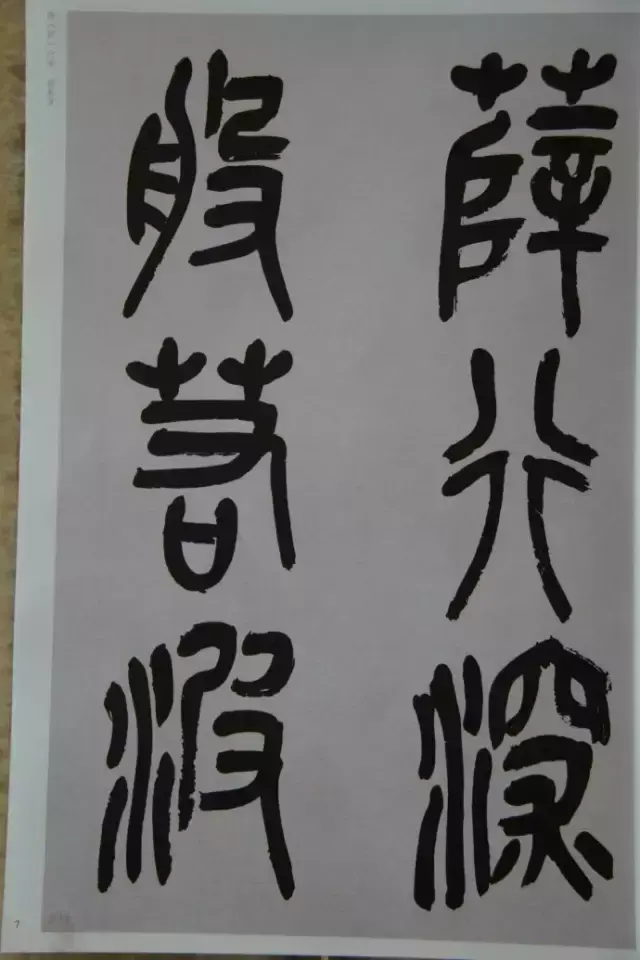 薛行深
般若波
7